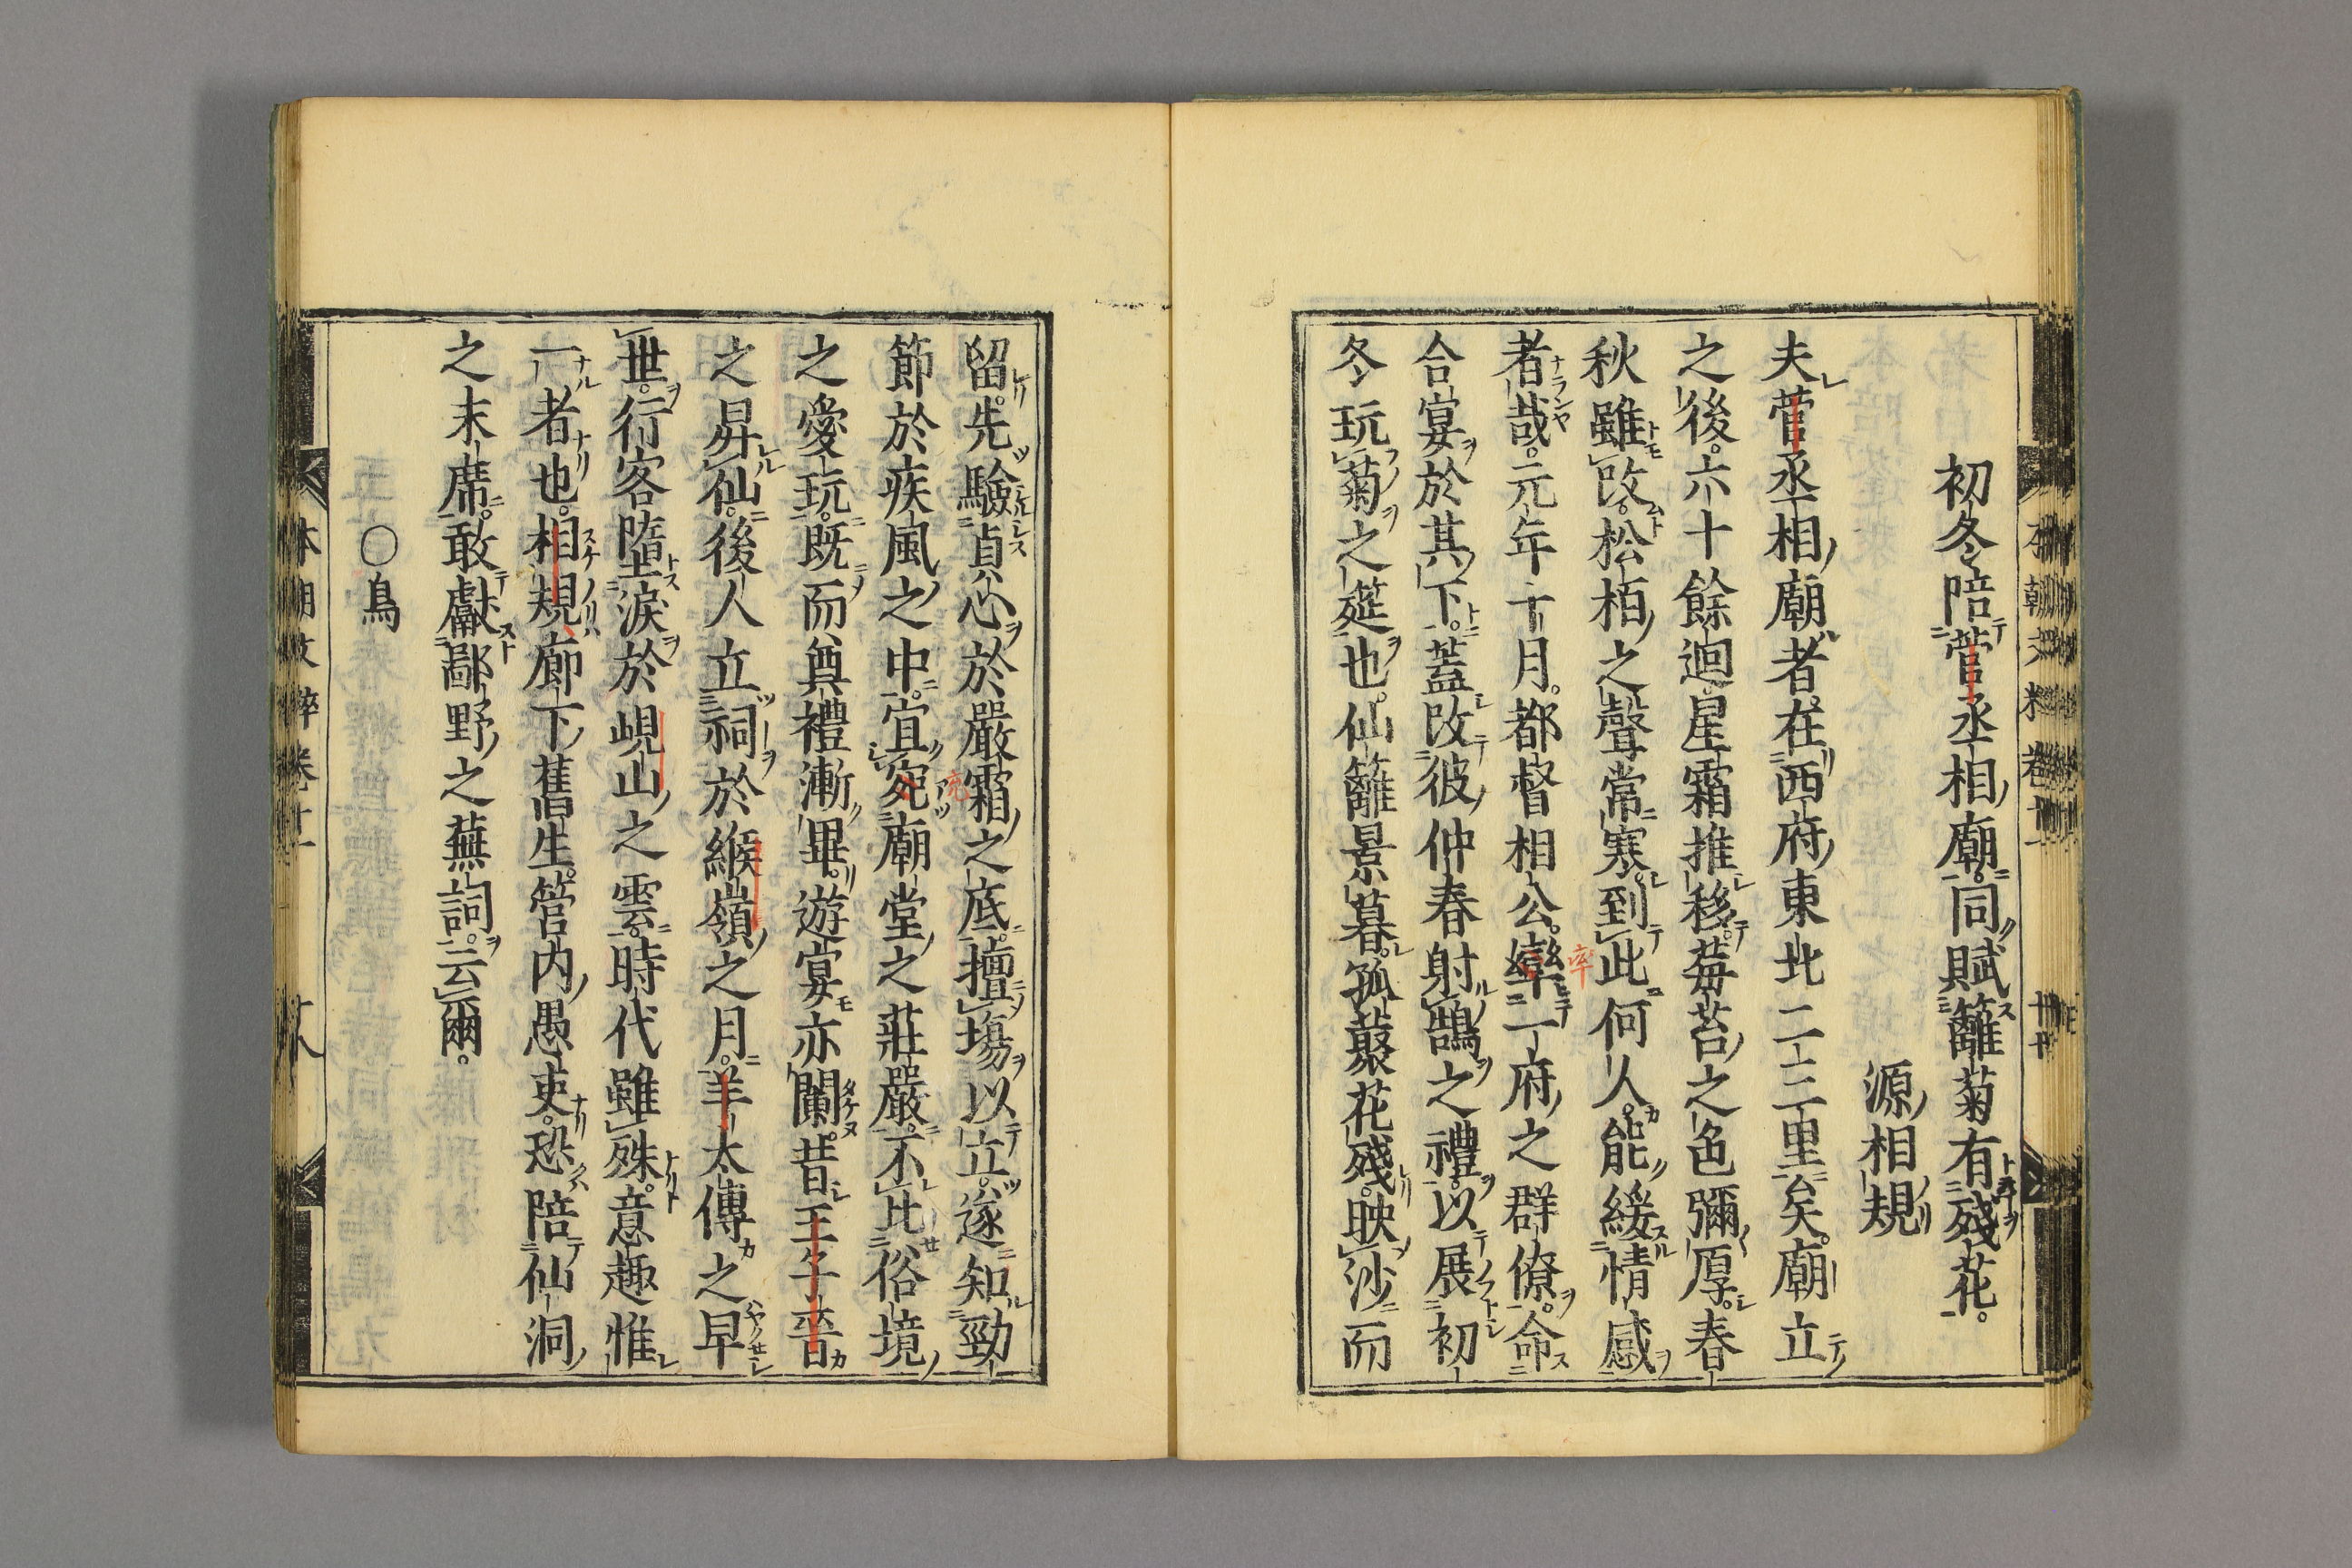 初冬陪菅丞相廟同賦籬菊有殘花。
源相規
夫菅丞相廟者。在西府東北二三里矣。廟立
之後。六十餘迴。星霜推移。莓苔之色彌厚。春
秋雖改。松栢之聲常寒。到此何人。能緩情感
者哉。元年十月。都督相公。率一府之群僚。命
合宴於其下。蓋改彼仲春射鵠之禮。以展初
冬玩菊之筵也。仙籬景暮。孤藂花殘。映沙而
留。先驗貞心於嚴霜之底。擅塲以立。遂知勁
節於疾風之中。宜宛廟堂之莊嚴。不比俗境
之愛玩。既而奠禮漸畢。遊宴亦闌。昔王子晉
之昇仙。後人立祠於緱嶺之月。羊太傅之早
世。行客墮淚於峴山之雲。時代雖殊。意趣惟
一者也。相規廊下舊生。管内愚吏。恐陪仙洞
之末席。敢獻鄙野之蕪詞。云爾。
○鳥
本朝文粹卷十一
本朝文粹卷十一
十八